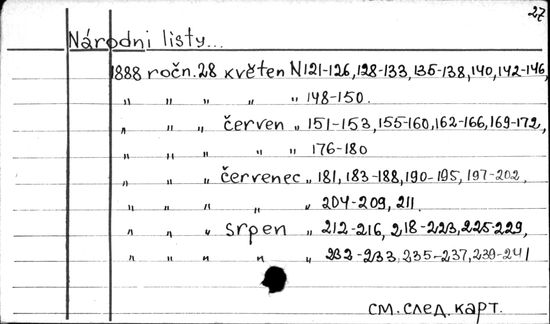 27
Národni listy...
1888 ročn. 28 květen N 121-126, 128-133, 135-138, 140, 142-146,
" " " " " 148-150.
" " " červen " 151-153, 155-160, 162-166, 169-172,
" " " " " 176-180
" " " červenec " 181, 183-188, 190-195, 197-202,
" " " " " 204-209, 211.
" " " srpen " 212-216, 218-223, 225-229,
" " " " " 232-233, 235-237, 239-241
см. след. карт.